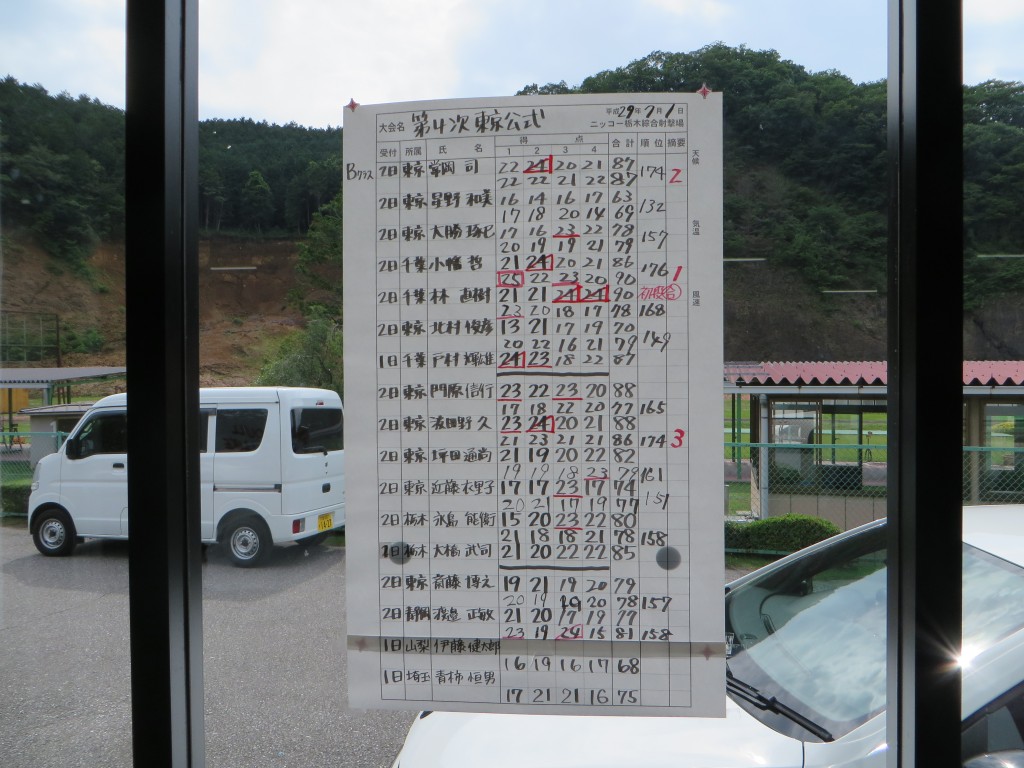 平成29年7月1日
大会名 第4次東京公式
ニッコー栃木綜合射撃場
受付 所属 氏名 得点 合計 順位 摘要
1 2 3 4
天候
気温
風速
Bクラス 2日 東京 司 22 24 20 21 87
22 22 21 22 87 174 2
2日 東京 星野 和美 16 14 16 17 63
17 18 20 14 69 132
2日 東京 大勝 琢巳 17 16 23 22 78
20 19 19 21 79 157
2日 千葉 小幡 哲 21 24 20 21 86
25 22 23 20 90 176 1
2日 千葉 林 直樹 21 21 24 24 90
23 20 18 17 78 168
2日 東京 北村 俊彦 13 21 17 19 70
20 22 16 21 79 149
1日 千葉 戸村 雄 24 23 18 22 87
2日 東京 門原 信行 23 22 23 20 88
17 18 22 20 77 165
2日 東京 波田野 久 23 24 20 21 88
21 23 21 21 86 174 3
2日 東京 坪田 通尚 21 19 20 22 82
19 19 18 23 79 161
2日 東京 近藤 衣里子 17 17 23 17 74
20 21 17 19 77 151
2日 栃木 永島 能衛 15 20 23 22 80
21 18 18 21 78 158
1日 栃木 大橋 武司 21 20 22 22 85
2日 東京 斎藤 博之 19 21 19 20 79
20 19 19 20 78 157
2日 静岡 渡邉 正敏 21 20 17 19 77
23 19 24 15 81 158
1日 山梨 伊藤 健太郎
16 19 16 17 68
1日 埼玉 青柿 恒男
17 21 21 16 75